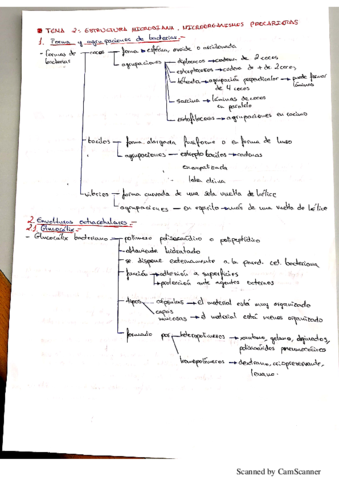 TEMA 2: ESTRUCTURA MICROBIANA, MICROORGANISMOS PROCARIOTAS
1. Forma y agrupaciones de bacterias.-
- Formas de bacterias
cocos → forma esférica, ovoide o arriñonada
agrupaciones → diplococos → cadena de 2 cocos
estreptococos → cadena de + de 2 cocos
tétrada → agrupación perpendicular → puede formar láminas
de 4 cocos
sarcina → láminas de cocos
en paralelo
estafilococos → agrupaciones en racimo
bacilos → forma alargada fusiforme o en forma de huso
agrupaciones → estreptobacilos → cadenas
en empalizada
letra china
vibrios → forma curvada de una sola vuelta de hélice
agrupaciones → en espirilo → más de una vuelta de hélice
2. Envolturas extracelulares.-
2.1. Glucocálix.-
- Glucocálix bacteriano → polímero polisacarídico o polipeptídico
altamente hidratado
se dispone externamente a la pared cel. bacteriana
función → adhesión a superficies
protección ante agentes externos
tipos → cápsulas → el material está muy organizado
capas
mucosas → el material está menos organizado
formado por → heteropolímeros →
polisacáridos pneumocócicos
homopolímeros → dextrano,
levano.
Scanned by CamScanner